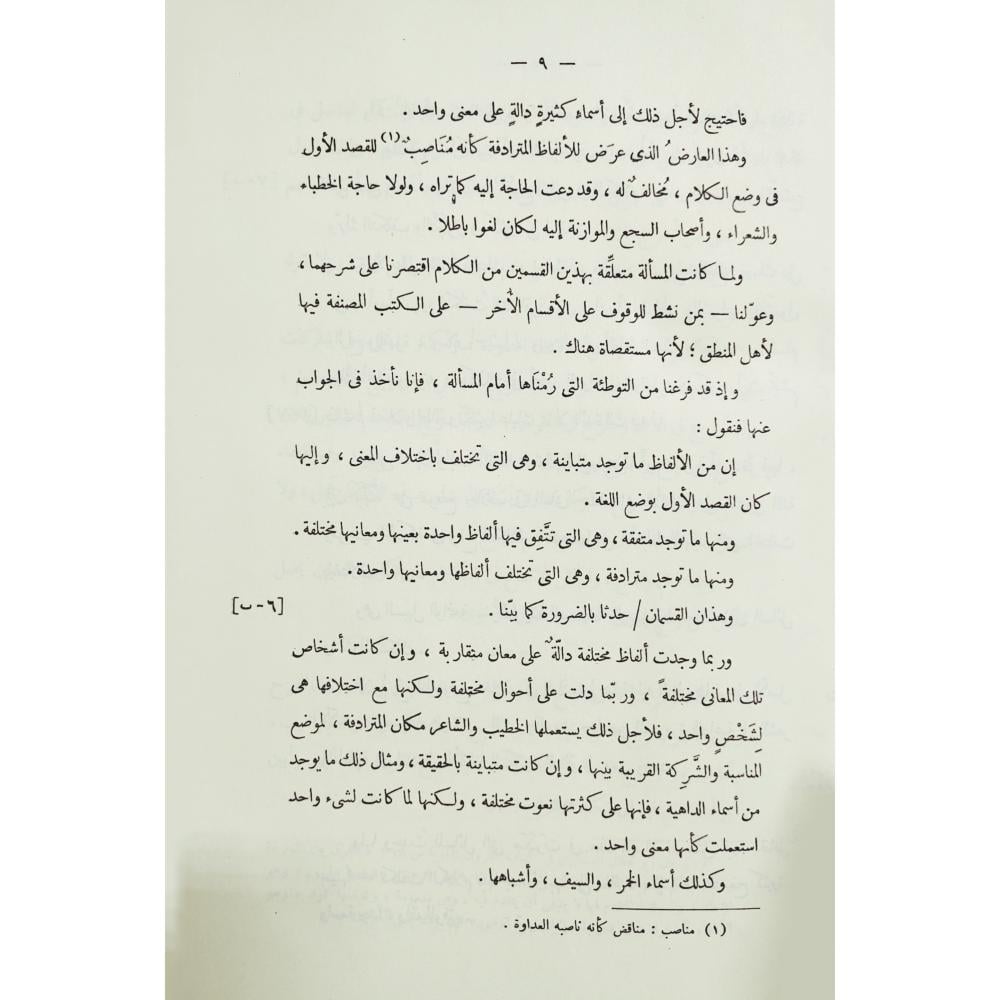 — ٩ —
فاحتيج لأجل ذلك إلى أسماء كثيرةٍ دالةٍ على معنى واحد .
وهذا العارضُ الذى عرَض للألفاظ المترادفة كأنه مُنَاصِبٌ(١) للقصد الأول
فى وضع الكلام ، مُخالفٌ له ، وقد دعت الحاجة إليه كما تراه ، ولولا حاجة الخطباء
والشعراء ، وأصحاب السجع والموازنة إليه لكان لغوا باطلا .
ولما كانت المسألة متعلِّقة بهذين القسمين من الكلام اقتصرنا على شرحهما،
وعوّلنا — بمن نشط للوقوف على الأقسام الأُخر — على الكتب المصنفة فيها
لأهل المنطق ؛ لأنها مستقصاة هناك .
وإذ قد فرغنا من التوطئة التى رُمْنَاها أمام المسألة ، فإنا نأخذ فى الجواب
عنها فنقول :
إن من الألفاظ ما توجد متباينة ، وهى التى تختلف باختلاف المعنى ، وإليها
كان القصد الأول بوضع اللغة .
ومنها ما توجد متفقة ، وهى التى تتَّفِق فيها ألفاظ واحدة بعينها ومعانيها مختلفة .
ومنها ما توجد مترادفة ، وهى التى تختلف ألفاظها ومعانيها واحدة .
وهذان القسمان / حدثا بالضرورة كما بيّنا . [٦-ب]
وربما وجدت ألفاظ مختلفة دالّةٌ على معان متقاربة ، وإن كانت أشخاص
تلك المعانى مختلفةً ، وربّما دلت على أحوال مختلفة ولكنها مع اختلافها هى
لِشَخْصٍ واحد ، فلأجل ذلك يستعملها الخطيب والشاعر مكان المترادفة ، لموضع
المناسبة والشَّرِكة القريبة بينها ، وإن كانت متباينة بالحقيقة ، ومثال ذلك ما يوجد
من أسماء الداهية ، فإنها على كثرتها نعوت مختلفة ، ولكنها لما كانت لشىء واحد
استعملت كأنها معنى واحد .
وكذلك أسماء الخمر ، والسيف ، وأشباهها .
(١) مناصب : مناقض كأنه ناصبه العداوة .